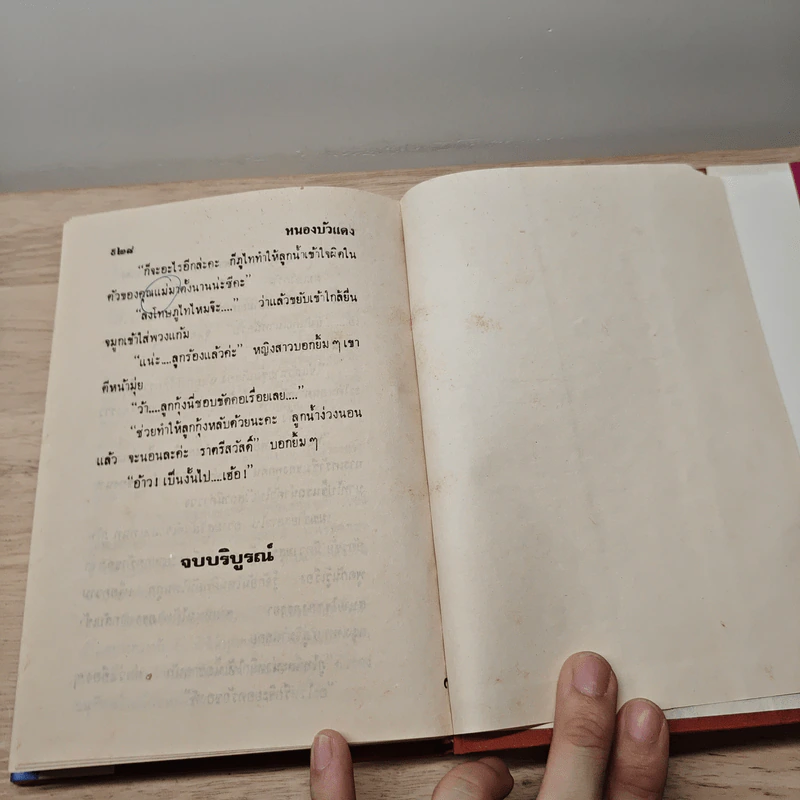 ๕๒๘
หนองบัวแดง
“ก็จะอะไรอีกล่ะคะ ก็ภูไททำให้ลูกน้ำเข้าใจผิดใน
ตัวของคุณแม่มาตั้งนานน่ะซีคะ”
“ลงโทษภูไทไหมจ๊ะ....” ว่าแล้วขยับเข้าใกล้ยื่น
จมูกเข้าใส่พวงแก้ม
“แน่ะ....ลูกร้องแล้วค่ะ” หญิงสาวบอกยิ้ม ๆ เขา
ตีหน้ามุ่ย
“ว้า....ลูกกุ้งนี่ชอบขัดคอเรื่อยเลย....”
“ช่วยทำให้ลูกกุ้งหลับด้วยนะคะ ลูกน้ำง่วงนอน
แล้ว จะนอนละค่ะ ราตรีสวัสดิ์” บอกยิ้ม ๆ
“อ้าว! เป็นงั้นไป....เฮ้อ!”
จบบริบูรณ์